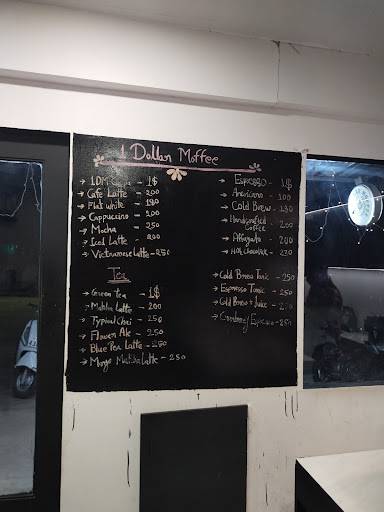 1 Dollar Moffee
→ 1DM - 1$
→ Cafe Latte - 200
→ Flat white - 190
→ Cappuccino - 200
→ Mocha - 250
→ Iced Latte - 200
→ Vietnamese latte - 250
Tea
→ Green tea - 1$
→ Matcha Latte - 200
→ Typical Chai - 250
→ Flower Ale - 250
→ Blue Pea Latte - 250
→ Mango Matcha Latte - 250
→ Espresso - 1$
→ Americano - 100
→ Cold Brew - 190
→ Handcrafted Coffee - 200
→ Affogato - 200
→ Hot Chocolate - 230
→ Cold Brew Tonic - 250
→ Espresso Tonic - 250
→ Cold Brew + Juice - 250
→ Cranberry Espresso - 250